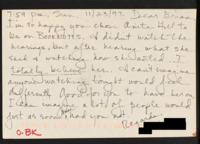 7:59 pm, Sun. 11/23/97 Dear Brian
I'm so happy you chose Anita Hill to
be on BOOKNOTES. I didn't watch the
hearings, but after hearing what she
said & watching how she
totally believe her. I can't imagine
anyone watching tonight would feel
differently. Good for you to have her on
I can imagine a lot of people would
just as soon had you not.
Regards
O.BK